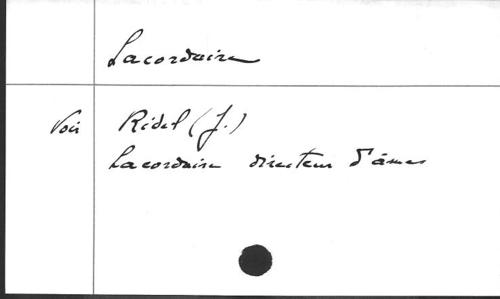 Lacordaire
Voir Ridel (J.)
Lacordaire directeur d'âmes